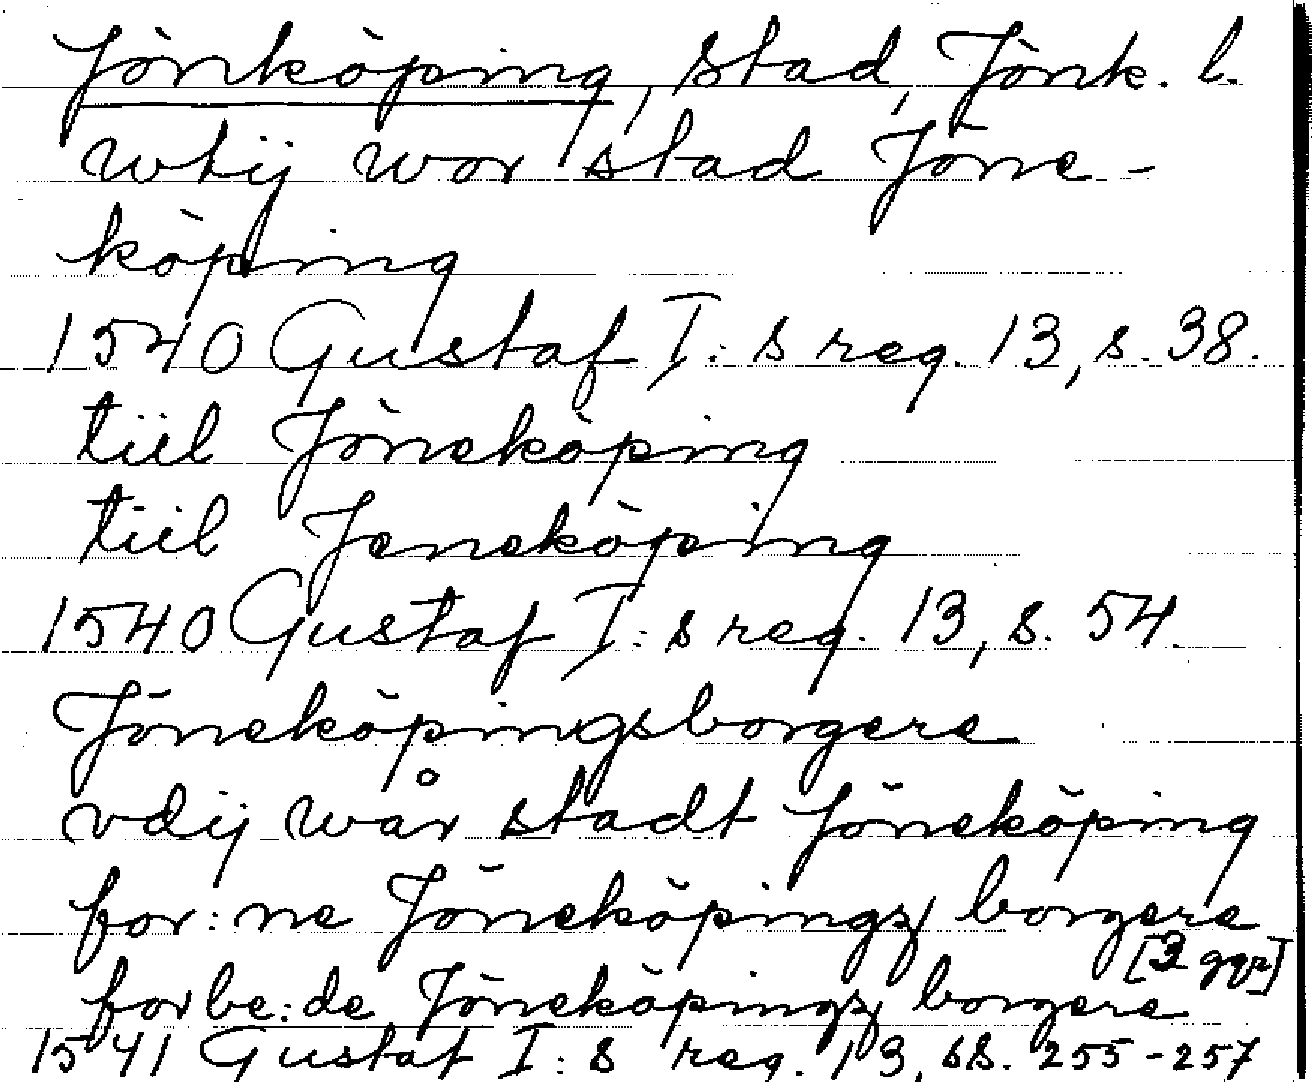 Jönköping, stad, Jönk. l.
wtij wor stad Jöne-
köping
1540 Gustaf I:s reg. 13, s. 38.
tiil Jöneköping
tiil Jeneköping
1540 Gustaf I:s reg. 13, s. 54.
Jöneköpingsborgere
vdij wår stadt Jöneköping
for:ne Jöneköpingz borgere
[3 ggr]
forbe:de Jöneköpingz borgere
1541 Gustaf I:s reg. 13, ss. 255-257